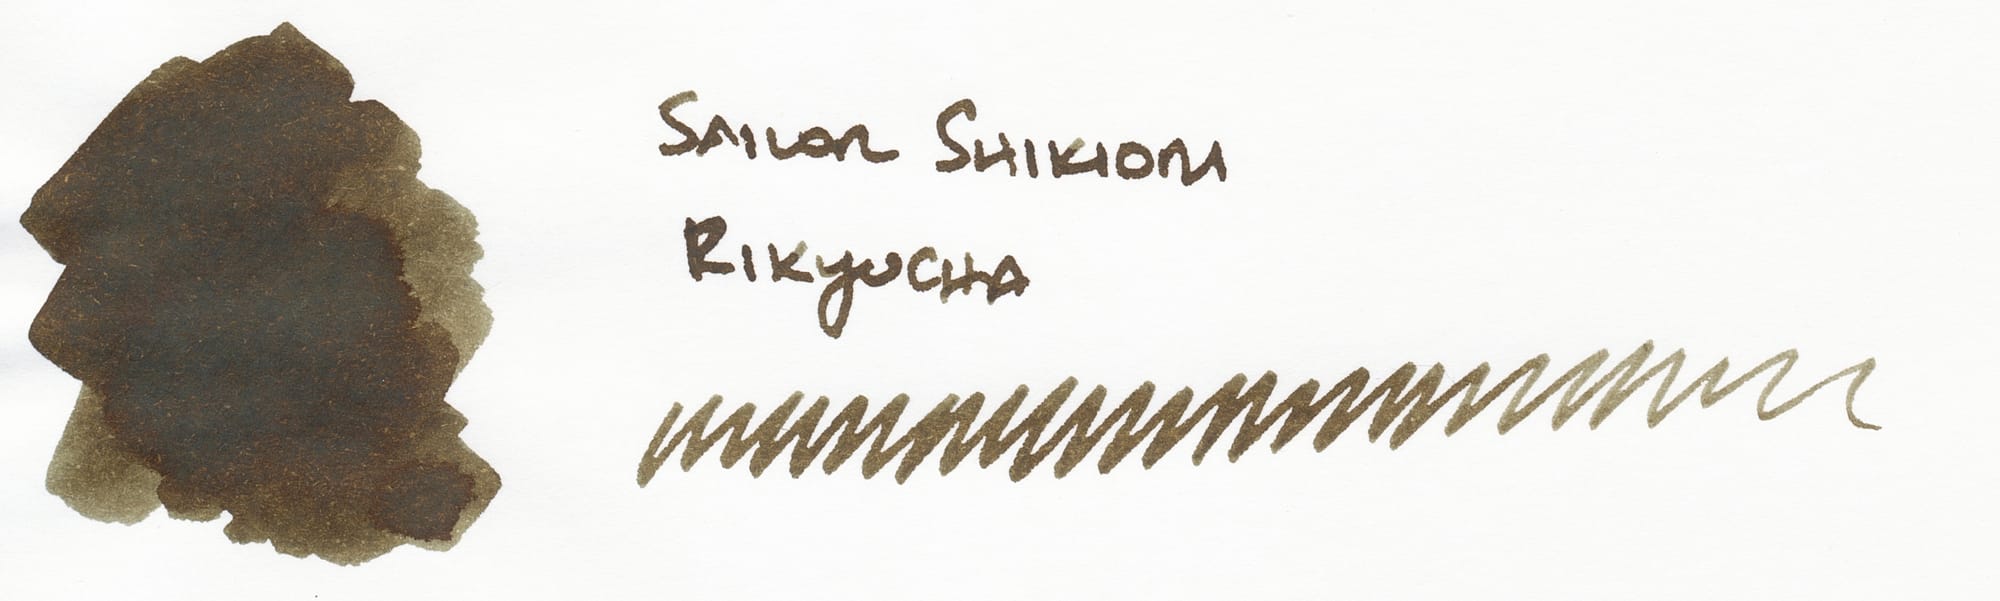 Sailor Shikiori
Rikyucha